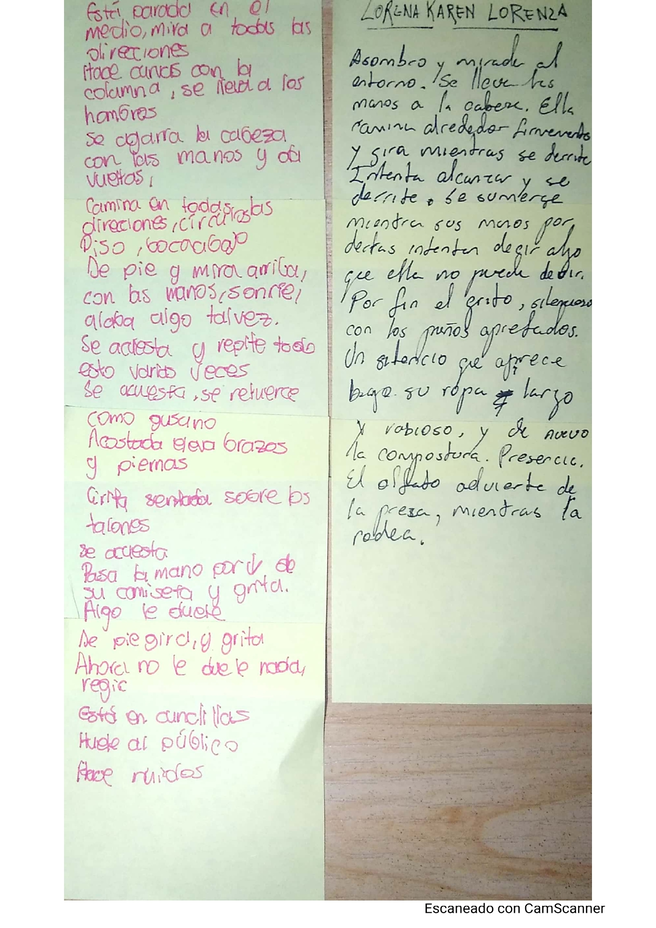 Está parado en el
medio, mira a todas las
direcciones
Hace curvas con la
columna, se lleva a los
hombros
Se agarra la cabeza
con las manos y da
vueltas,
Camina en todas las
direciones, circulos
Piso, bocaabajo
De pie y mira arriba,
con las manos, sonrie,
alaba algo talvez.
Se acuesta y repite todo
esto varias veces
Se acuesta, se retuerce
como gusano
Acostada eleva brazos
y piernas
Grita sentada sobre los
talones
Se acuesta
Pasa la mano por de
su camiseta y grita.
Algo le duele
De pie gira, y grita
Ahora no le duele nada,
Está en cunclillas
Huele al público
Hace ruidos
LORENA KAREN LORENZA
Asombro y mirada al
entorno. Se lleva las
manos a la cabeza. Ella
camina alrededor firmemente
y gira mientras se derrite
Intenta alcanzar y se
derrite. Se sumerge
mientra sus manos por
detras intentan decir algo
que ella no puede decir.
Por fin el grito, silencioso
con los puños apretados.
Un silencio que aprece
bajo su ropa largo
y rabioso, y de nuevo
la compostura. Presencia.
El olfato advierte de
la presa, mientras la
rodea.
Escaneado con CamScanner